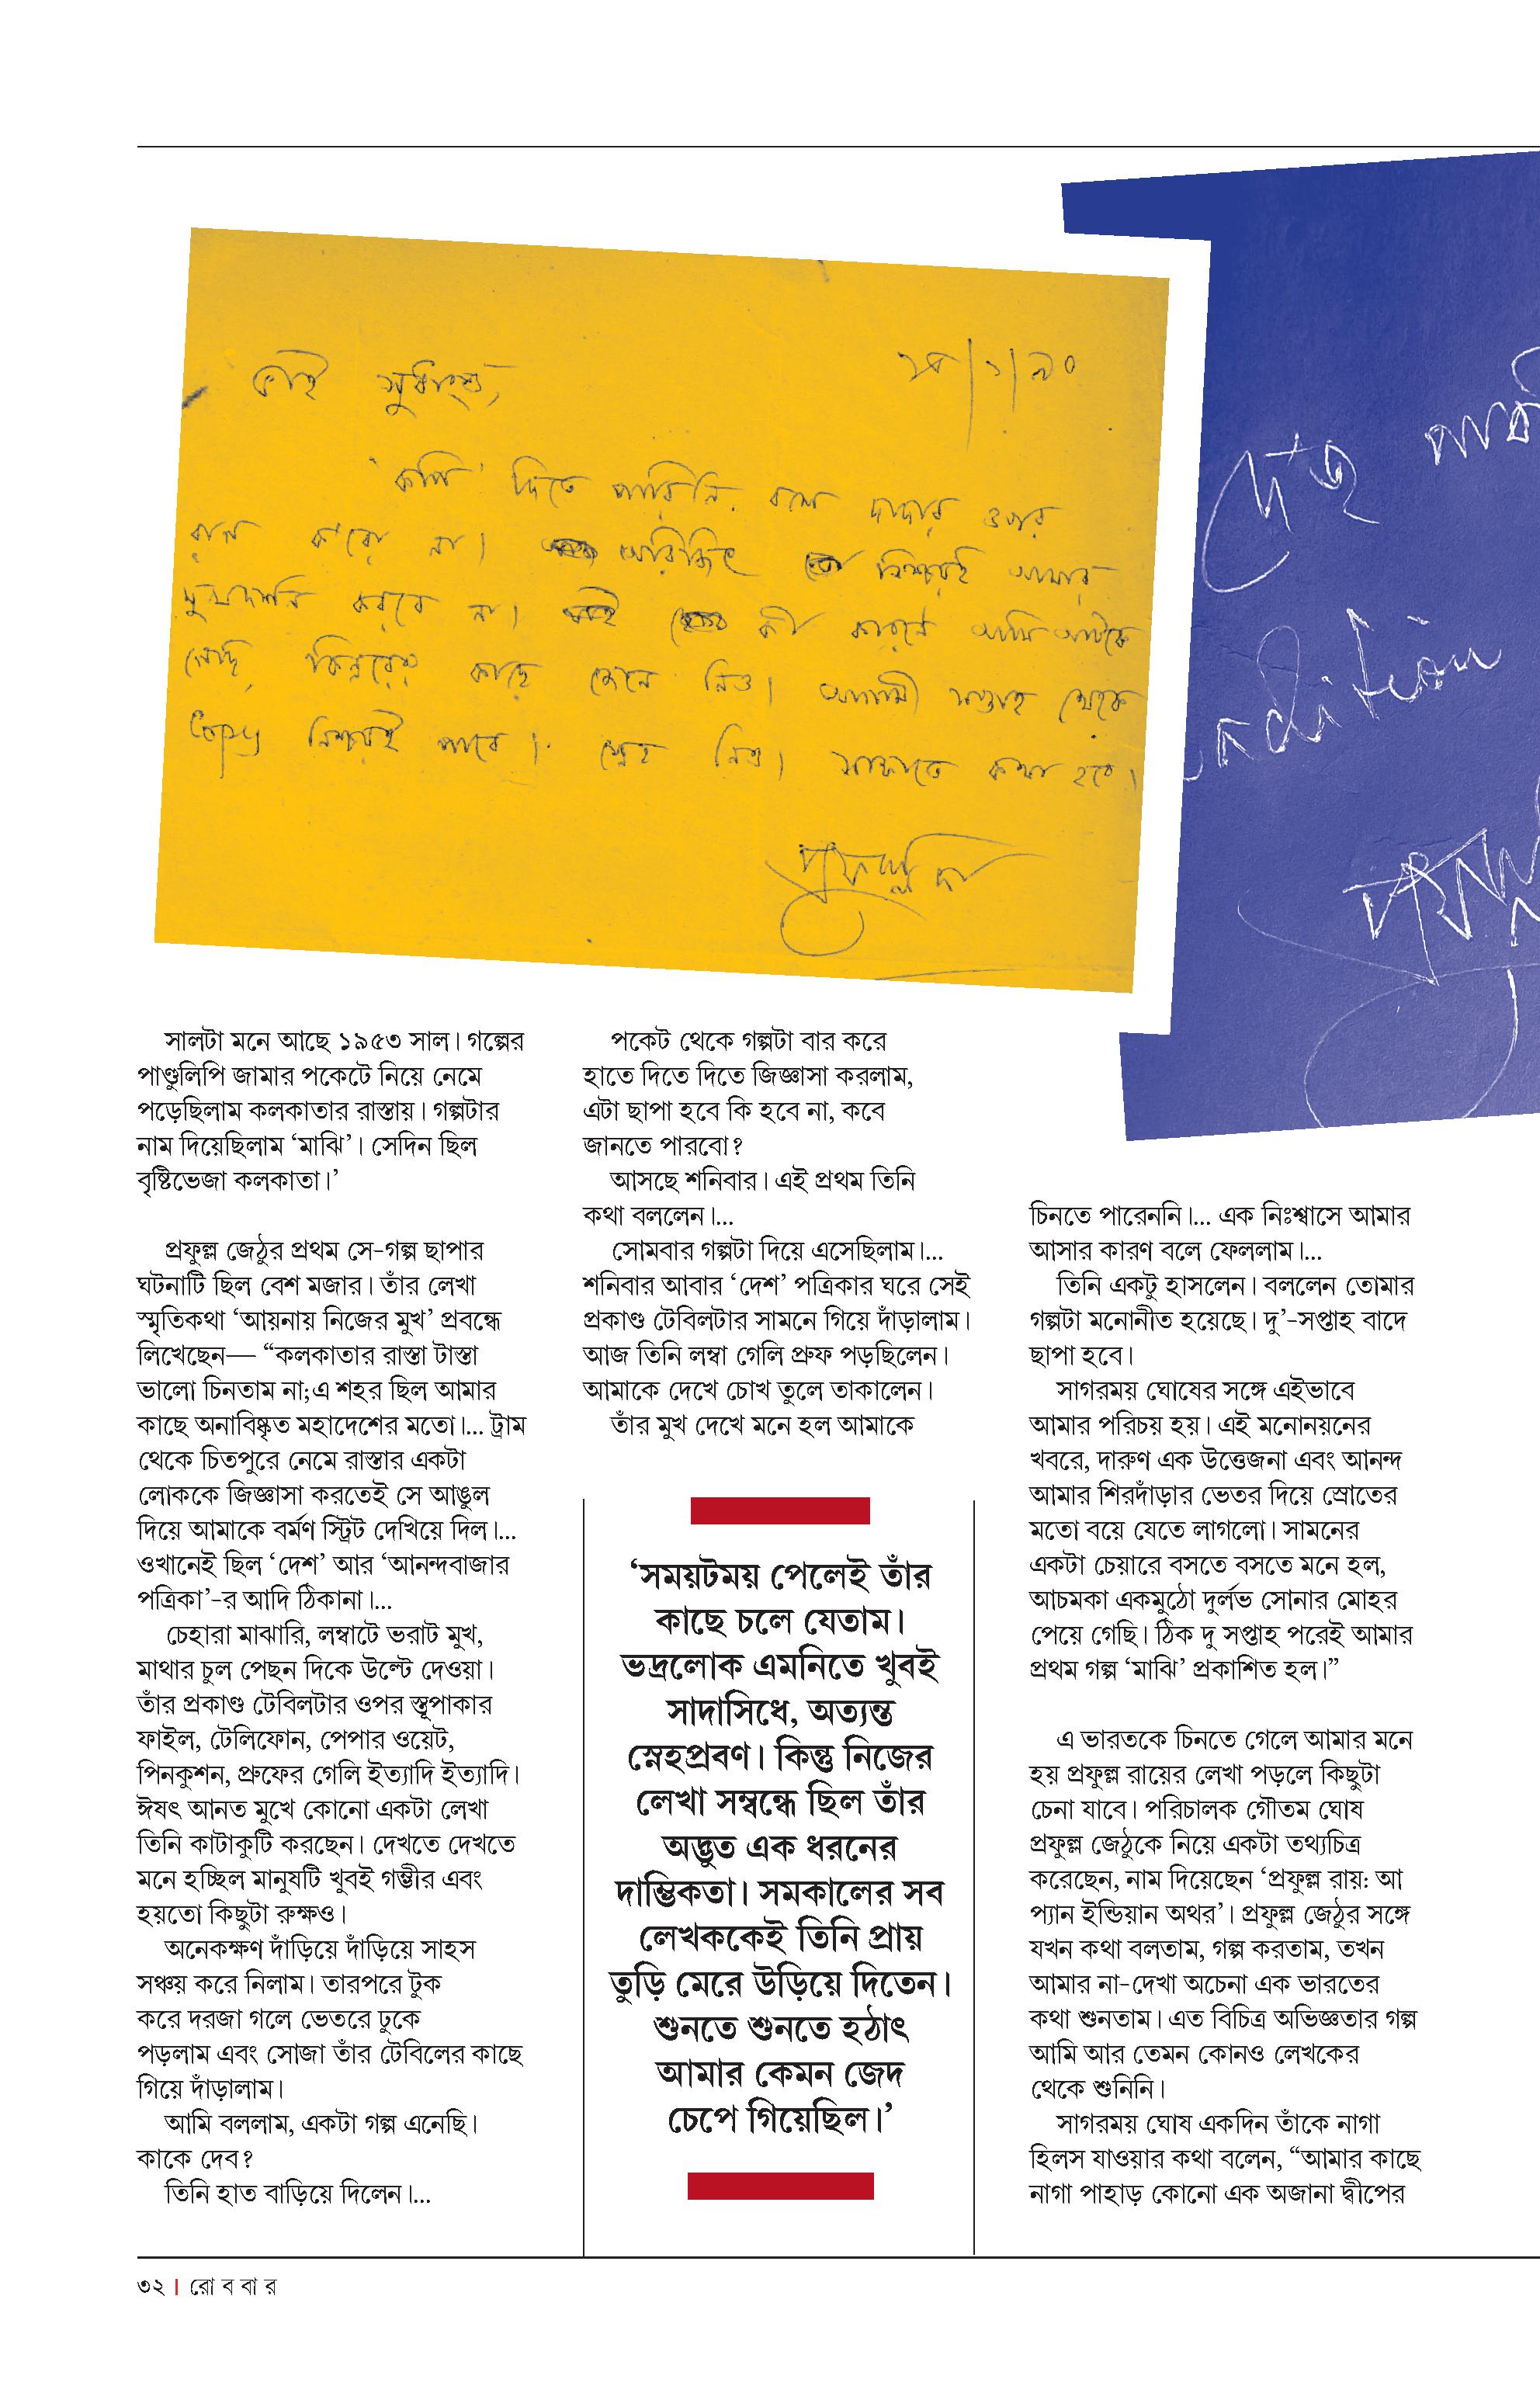 ভাই সুধাংশু,
২৪/১/৯০
'কপি' দিতে পারিনি বলে দাদার ওপর
রাগ ক'রো না। অরিজিৎ নিশ্চয়ই আমার
মুখদর্শন করবে না। কী কারণে আমি আটকে
গেছি, কিন্নরের কাছে জেনে নিও। আগামী সপ্তাহ থেকে
Copy নিশ্চয়ই পাবে। স্নেহ নিও। সাক্ষাতে কথা হবে।
প্রফুল্লদা
সালটা মনে আছে ১৯৫৩ সাল। গল্পের
পাণ্ডুলিপি জামার পকেটে নিয়ে নেমে
পড়েছিলাম কলকাতার রাস্তায়। গল্পটার
নাম দিয়েছিলাম ‘মাঝি’। সেদিন ছিল
বৃষ্টিভেজা কলকাতা।’
প্রফুল্ল জেঠুর প্রথম সে-গল্প ছাপার
ঘটনাটি ছিল বেশ মজার। তাঁর লেখা
স্মৃতিকথা ‘আয়নায় নিজের মুখ’ প্রবন্ধে
লিখেছেন— “কলকাতার রাস্তা টাস্তা
ভালো চিনতাম না;এ শহর ছিল আমার
কাছে অনাবিষ্কৃত মহাদেশের মতো।... ট্রাম
থেকে চিতপুরে নেমে রাস্তার একটা
লোককে জিজ্ঞাসা করতেই সে আঙুল
দিয়ে আমাকে বর্মণ স্ট্রিট দেখিয়ে দিল।...
ওখানেই ছিল ‘দেশ’ আর ‘আনন্দবাজার
পত্রিকা’-র আদি ঠিকানা।...
চেহারা মাঝারি, লম্বাটে ভরাট মুখ,
মাথার চুল পেছন দিকে উল্টে দেওয়া।
তাঁর প্রকাণ্ড টেবিলটার ওপর স্তূপাকার
ফাইল, টেলিফোন, পেপার ওয়েট,
পিনকুশন, প্রুফের গেলি ইত্যাদি ইত্যাদি।
ঈষৎ আনত মুখে কোনো একটা লেখা
তিনি কাটাকুটি করছেন। দেখতে দেখতে
মনে হচ্ছিল মানুষটি খুবই গম্ভীর এবং
হয়তো কিছুটা রুক্ষও।
অনেকক্ষণ দাঁড়িয়ে দাঁড়িয়ে সাহস
সঞ্চয় করে নিলাম। তারপরে টুক
করে দরজা গলে ভেতরে ঢুকে
পড়লাম এবং সোজা তাঁর টেবিলের কাছে
গিয়ে দাঁড়ালাম।
আমি বললাম, একটা গল্প এনেছি।
কাকে দেব?
তিনি হাত বাড়িয়ে দিলেন।...
পকেট থেকে গল্পটা বার করে
হাতে দিতে দিতে জিজ্ঞাসা করলাম,
এটা ছাপা হবে কি হবে না, কবে
জানতে পারবো?
আসছে শনিবার। এই প্রথম তিনি
কথা বললেন।...
সোমবার গল্পটা দিয়ে এসেছিলাম।...
শনিবার আবার ‘দেশ’ পত্রিকার ঘরে সেই
প্রকাণ্ড টেবিলটার সামনে গিয়ে দাঁড়ালাম।
আজ তিনি লম্বা গেলি প্রুফ পড়ছিলেন।
আমাকে দেখে চোখ তুলে তাকালেন।
তাঁর মুখ দেখে মনে হল আমাকে
‘সময়টময় পেলেই তাঁর
কাছে চলে যেতাম।
ভদ্রলোক এমনিতে খুবই
সাদাসিধে, অত্যন্ত
স্নেহপ্রবণ। কিন্তু নিজের
লেখা সম্বন্ধে ছিল তাঁর
অদ্ভুত এক ধরনের
দাম্ভিকতা। সমকালের সব
লেখককেই তিনি প্রায়
তুড়ি মেরে উড়িয়ে দিতেন।
শুনতে শুনতে হঠাৎ
আমার কেমন জেদ
চেপে গিয়েছিল।’
চিনতে পারেননি।... এক নিঃশ্বাসে আমার
আসার কারণ বলে ফেললাম।...
তিনি একটু হাসলেন। বললেন তোমার
গল্পটা মনোনীত হয়েছে। দু’-সপ্তাহ বাদে
ছাপা হবে।
সাগরময় ঘোষের সঙ্গে এইভাবে
আমার পরিচয় হয়। এই মনোনয়নের
খবরে, দারুণ এক উত্তেজনা এবং আনন্দ
আমার শিরদাঁড়ার ভেতর দিয়ে স্রোতের
মতো বয়ে যেতে লাগলো। সামনের
একটা চেয়ারে বসতে বসতে মনে হল,
আচমকা একমুঠো দুর্লভ সোনার মোহর
পেয়ে গেছি। ঠিক দু সপ্তাহ পরেই আমার
প্রথম গল্প ‘মাঝি’ প্রকাশিত হল।”
এ ভারতকে চিনতে গেলে আমার মনে
হয় প্রফুল্ল রায়ের লেখা পড়লে কিছুটা
চেনা যাবে। পরিচালক গৌতম ঘোষ
প্রফুল্ল জেঠুকে নিয়ে একটা তথ্যচিত্র
করেছেন, নাম দিয়েছেন ‘প্রফুল্ল রায়: আ
প্যান ইন্ডিয়ান অথর’। প্রফুল্ল জেঠুর সঙ্গে
যখন কথা বলতাম, গল্প করতাম, তখন
আমার না-দেখা অচেনা এক ভারতের
কথা শুনতাম। এত বিচিত্র অভিজ্ঞতার গল্প
আমি আর তেমন কোনও লেখকের
থেকে শুনিনি।
সাগরময় ঘোষ একদিন তাঁকে নাগা
হিলস যাওয়ার কথা বলেন, “আমার কাছে
নাগা পাহাড় কোনো এক অজানা দ্বীপের
৩২ । রোববার